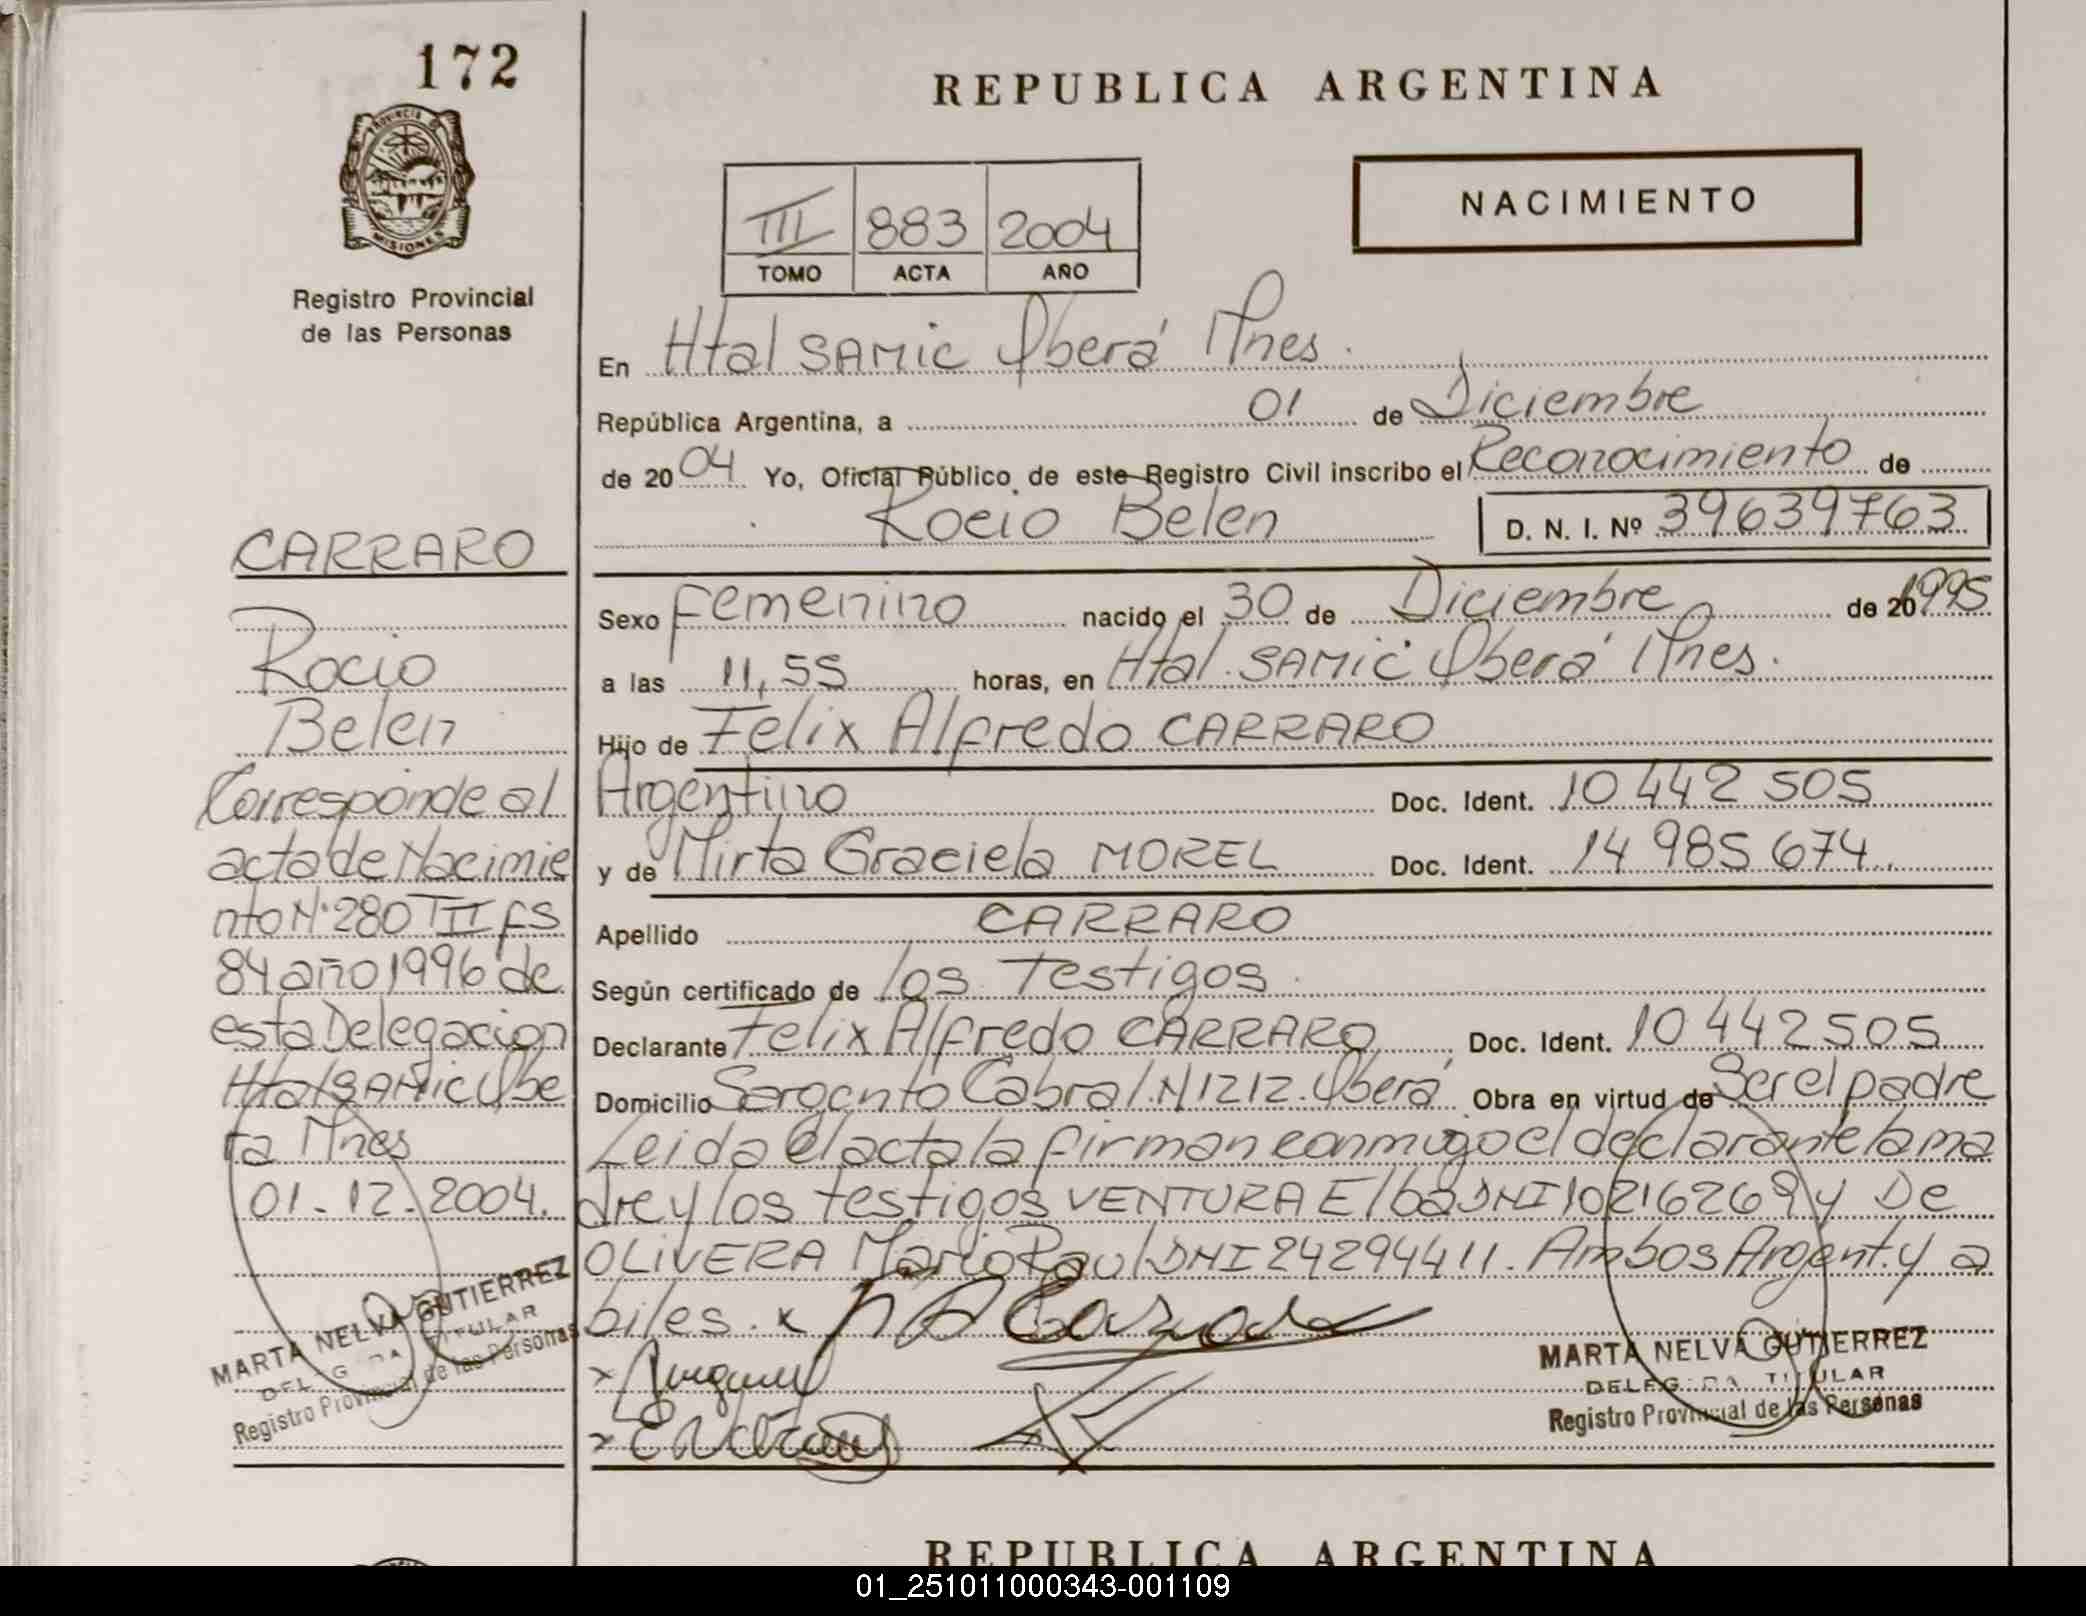 172
PROVINCIA DE
MISIONES
Registro Provincial
de las Personas
REPUBLICA ARGENTINA
NACIMIENTO
III 883 2004
TOMO ACTA AÑO
En Htal SAMIC Oberá Mnes.
República Argentina, a 01 de Diciembre
de 2004 Yo, Oficial Público de este Registro Civil inscribo el Reconocimiento de
Rocio Belen D. N. I. Nº 39639763
Sexo Femenino nacido el 30 de Diciembre de 20 1995
a las 11,55 horas, en Htal. SAMIC Oberá Mnes.
Hijo de Felix Alfredo CARRARO
Argentino Doc. Ident. 10 442 505
y de Mirta Graciela MOREL Doc. Ident. 14 985 674
Apellido CARRARO
Según certificado de los Testigos
Declarante Felix Alfredo CARRARO Doc. Ident. 10 442 505
Domicilio Sargento Cabral N 1212. Oberá Obra en virtud de Ser el padre
Leida el acta la firman conmigo el declarante la ma
dre y los testigos VENTURA Elba DNI 10216269 y De
OLIVERA Mario Raul DNI 24294411. Ambos Argent. y a
biles. x
MARTA NELVA GUTIERREZ
DELEGADA TITULAR
Registro Provincial de las Personas
CARRARO
Rocio
Belen
Corresponde al
acta de Nacimie
nto Nº 280 T III fs
84 año 1996 de
esta Delegacion
Htal SAMIC Obe
ra Mnes
01-12-2004.
MARTA NELVA GUTIERREZ
DELEGADA TITULAR
Registro Provincial de las Personas
REPUBLICA ARGENTINA
01_251011000343-001109